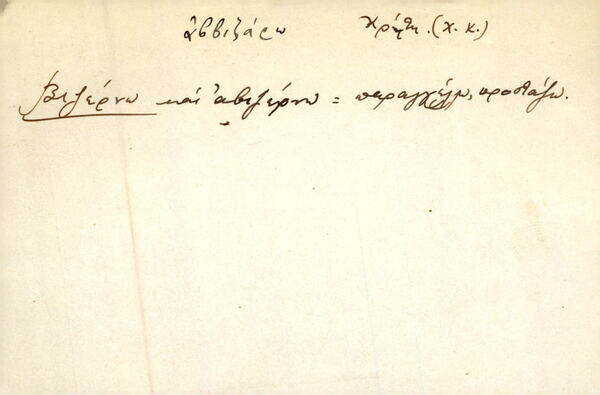 ἀββιζάρω Κρήτη. (Χ. Κ.)
Βιζέρνω καὶ ἀβιζέρνω = παραγγέλλω, προστάζω.